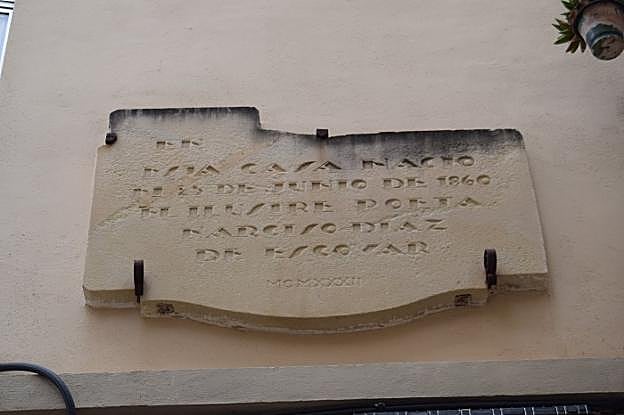 EN
ESTA CASA NACIO
EL 25 DE JUNIO DE 1860
EL ILUSTRE POETA
NARCISO DIAZ
DE ESCOVAR
MCMXXXII